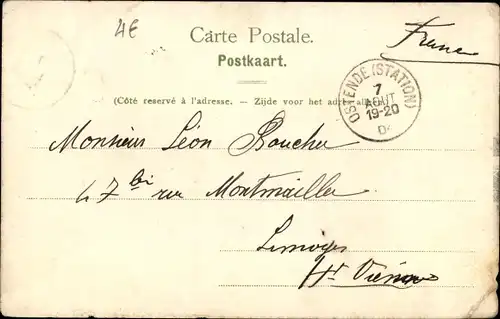 4€
Carte Postale.
Postkaart.
France
(Côté reservé à l'adresse. – Zijde voor het adres alleen.)
OSTENDE (STATION)
7
AOUT
19-20
Monsieur Léon Boucher
47 bis rue Montmailler
Limoges
Hte Vienne